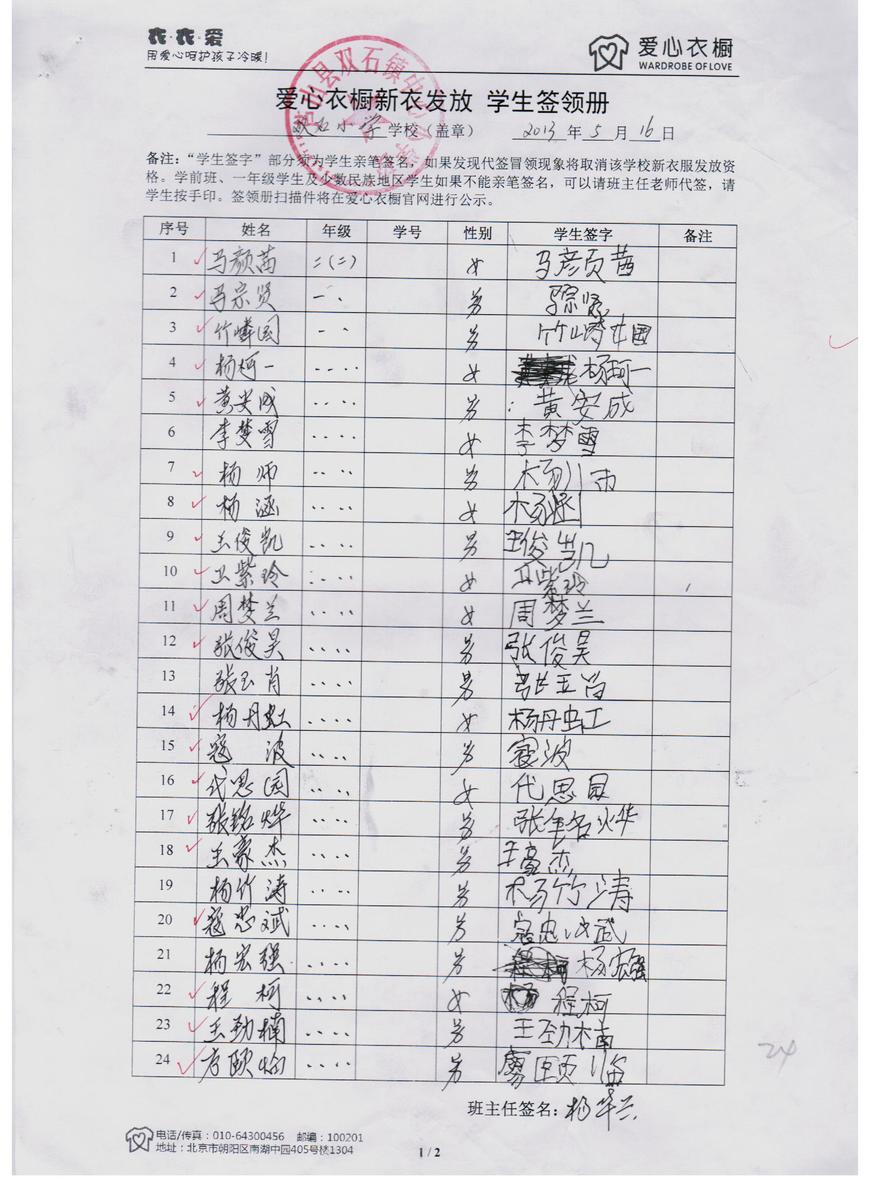 衣·衣·爱
用爱心呵护孩子冷暖!
爱心衣橱
WARDROBE OF LOVE
爱心衣橱新衣发放 学生签领册
双石小学 学校（盖章） 2013年5月16日
备注：“学生签字”部分须为学生亲笔签名，如果发现代签冒领现象将取消该学校新衣服发放资
格。学前班、一年级学生及少数民族地区学生如果不能亲笔签名，可以请班主任老师代签，请
学生按手印。签领册扫描件将在爱心衣橱官网进行公示。
序号 姓名 年级 学号 性别 学生签字 备注
1 马颜茜 二(二) 女 马颜茜
2 马宗贤 男 马宗贤
3 竹 国 男 竹 国
4 杨柯一 女 杨柯一
5 黄安成 男 黄安成
6 李梦雪 女 李梦雪
7 杨师 男 杨师
8 杨涵 女 杨涵
9 王俊凯 男 王俊凯
10 卫紫玲 女 卫紫玲
11 周梦兰 女 周梦兰
12 张俊昊 男 张俊昊
13 张玉肖 男 张玉肖
14 杨丹虹 女 杨丹虹
15 寇波 男 寇波
16 代思园 女 代思
17 张铭烨 男 张铭烨
18 王豪杰 男 王豪杰
19 杨竹涛 男 杨竹涛
20 寇忠斌 男 寇忠
21 杨宏强 男 杨宏强
22 程柯 女 程柯
23 王劲楠 男 王劲楠
24 男
24
班主任签名：杨华兰
电话/传真：010-64300456 邮编：100201
地址：北京市朝阳区南湖中园405号楼1304
1 / 2